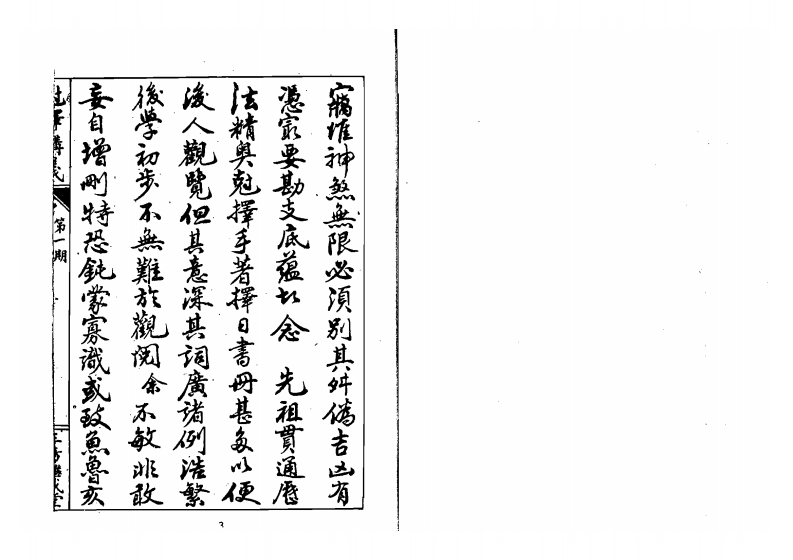 竊惟神煞無限必須別其舛偽吉凶有
憑最要勘支底蘊切念　先祖貫通曆
法精奧尅擇手著擇日書冊甚多以便
後人觀覽但其意深其詞廣諸例浩繁
後學初步不無難於觀閱余不敏非敢
妄自增刪特恐鈍蒙寡識或致魚魯亥
尅擇講義
第一期
3